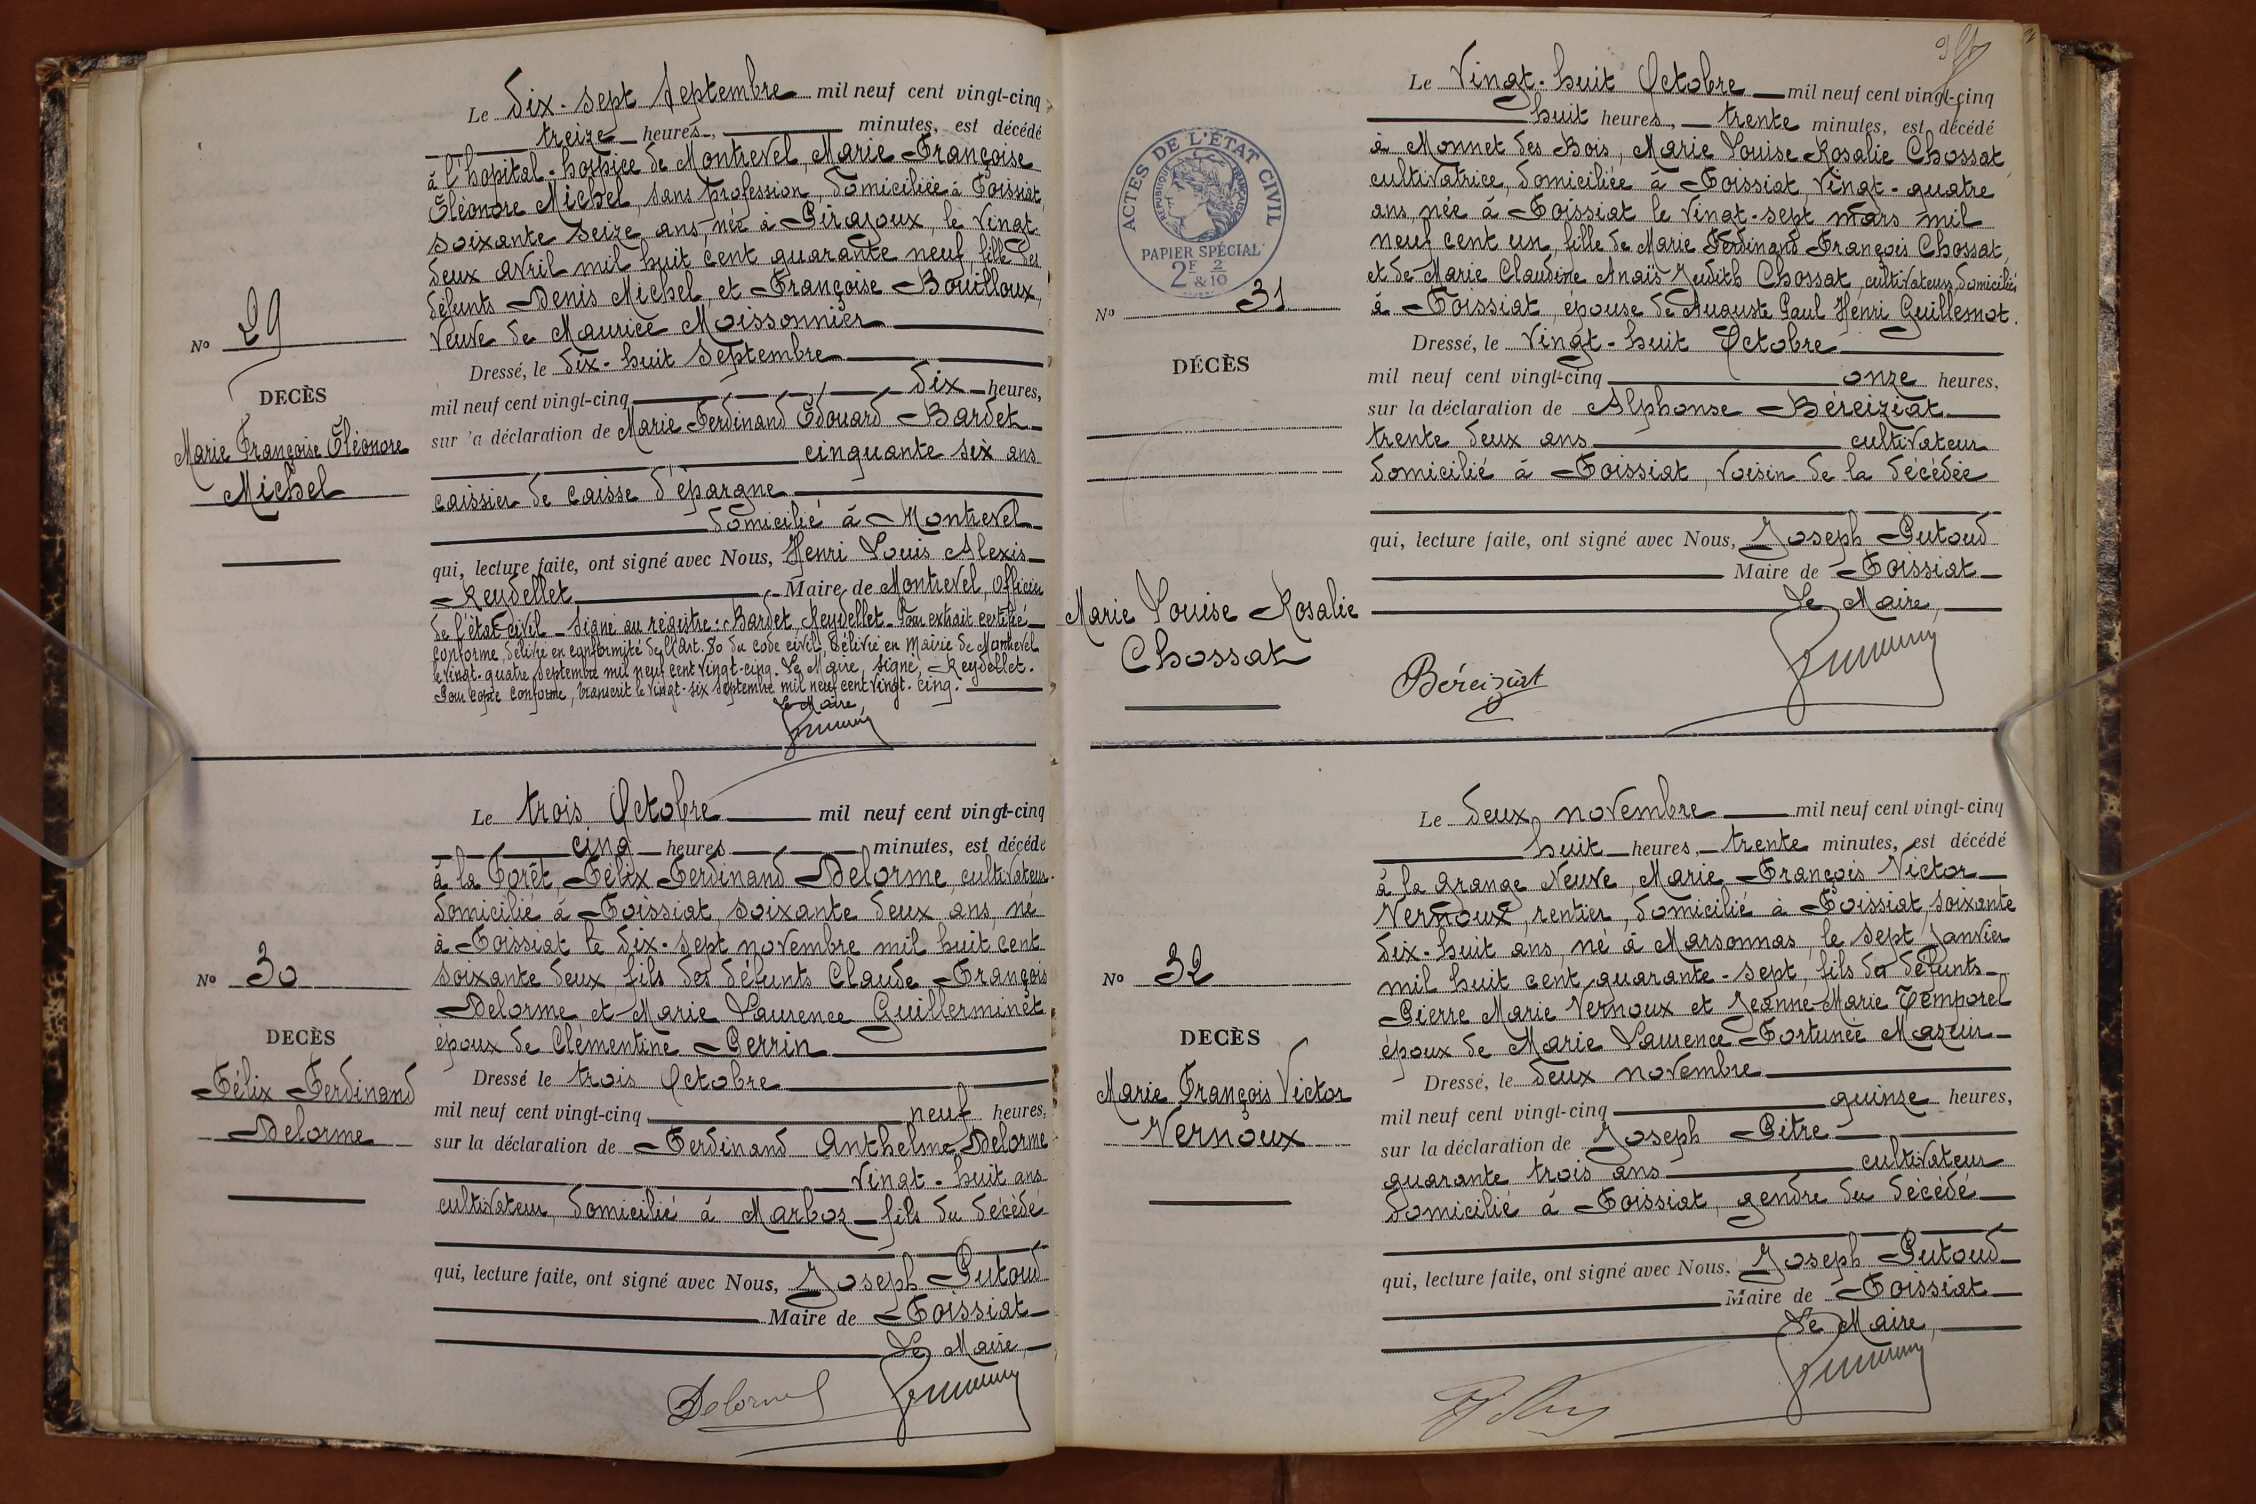 Le dix-sept Septembre mil neuf cent vingt-cinq
treize heures, minutes, est décédé
à l'hopital-hospice de Montrevel, Marie Françoise
Eléonore Michel, sans profession, domiciliée à Foissiat,
soixante seize ans, née à Pirajoux, le vingt
deux avril mil huit cent quarante neuf, fille des
défunts Denis Michel, et Françoise Bouilloux,
veuve de Maurice Moissonnier
Dressé, le dix-huit Septembre
mil neuf cent vingt-cinq dix heures,
sur 'a déclaration de Marie Ferdinand Edouard Bardet
cinquante six ans
caissier de caisse d'épargne
domicilié à Montrevel
qui, lecture faite, ont signé avec Nous, Henri Louis Alexis
Reydellet Maire de Montrevel, Officier
de l'état-civil. Signé au régistre: Bardet, Reydellet. Pour extrait certifié
conforme, délivré en conformité de l'art. 80 du code civil, délivré en Mairie de Montrevel
le vingt-quatre Septembre mil neuf cent vingt-cinq. Le Maire, signé, Reydellet.
Pour copie conforme, transcrit le vingt-six septembre mil neuf cent vingt-cinq.
Le Maire,
No 29
DECÈS
Marie Françoise Eléonore
Michel
Le trois Octobre mil neuf cent vingt-cinq
cinq heures minutes, est décédé
à la Forêt, Félix Ferdinand Delorme, cultivateur
domicilié à Foissiat, soixante deux ans, né
à Foissiat le dix-sept novembre mil huit cent
soixante deux fils des défunts Claude François
Delorme et Marie Laurence Guillerminet
époux de Clémentine Perrin
Dressé le trois Octobre
mil neuf cent vingt-cinq neuf heures,
sur la déclaration de Ferdinand Anthelme Delorme
vingt-huit ans
cultivateur, domicilié à Marboz fils du décédé
qui, lecture faite, ont signé avec Nous, Joseph Putoud
Maire de Foissiat
Le Maire,
Delorme
No 30
DECÈS
Félix Ferdinand
Delorme
Le Vingt-huit Octobre mil neuf cent vingt-cinq
huit heures, trente minutes, est décédé
à Monnet des Bois, Marie Louise Rosalie Chossat,
cultivatrice, domiciliée à Foissiat, vingt-quatre
ans, née à Foissiat le vingt-sept mars mil
neuf cent un, fille de Marie Ferdinand François Chossat,
et de Marie Claudine Anaïs Judith Chossat, cultivateurs, domiciliés
à Foissiat, epouse de Auguste Paul Henri Guillemot.
Dressé, le vingt-huit Octobre
mil neuf cent vingt-cinq onze heures,
sur la déclaration de Alphonse Béreiziat
trente deux ans cultivateur
domicilié à Foissiat, voisin de la décédée
qui, lecture faite, ont signé avec Nous, Joseph Putoud
Maire de Foissiat
Le Maire,
Béreiziat
ACTES DE L'ÉTAT CIVIL
RÉPUBLIQUE FRANÇAISE
PAPIER SPÉCIAL
2F & 2/10
No 31
DÉCÈS
Marie Louise Rosalie
Chossat
Le deux novembre mil neuf cent vingt-cinq
huit heures, trente minutes, est décédé
à la grange Neuve, Marie François Victor
Vernoux, rentier, domicilié à Foissiat, soixante
dix-huit ans, né à Marsonnas, le sept Janvier
mil huit cent quarante-sept, fils de défunts
Pierre Marie Vernoux et Jeanne-Marie Temporel
époux de Marie Laurence Fortunée Mazuir
Dressé, le deux novembre
mil neuf cent vingt-cinq quinze heures,
sur la déclaration de Joseph Pitre
quarante trois ans cultivateur
domicilié à Foissiat, gendre du décédé
qui, lecture faite, ont signé avec Nous, Joseph Putoud
Maire de Foissiat
Le Maire,
No 32
DECÈS
Marie François Victor
Vernoux